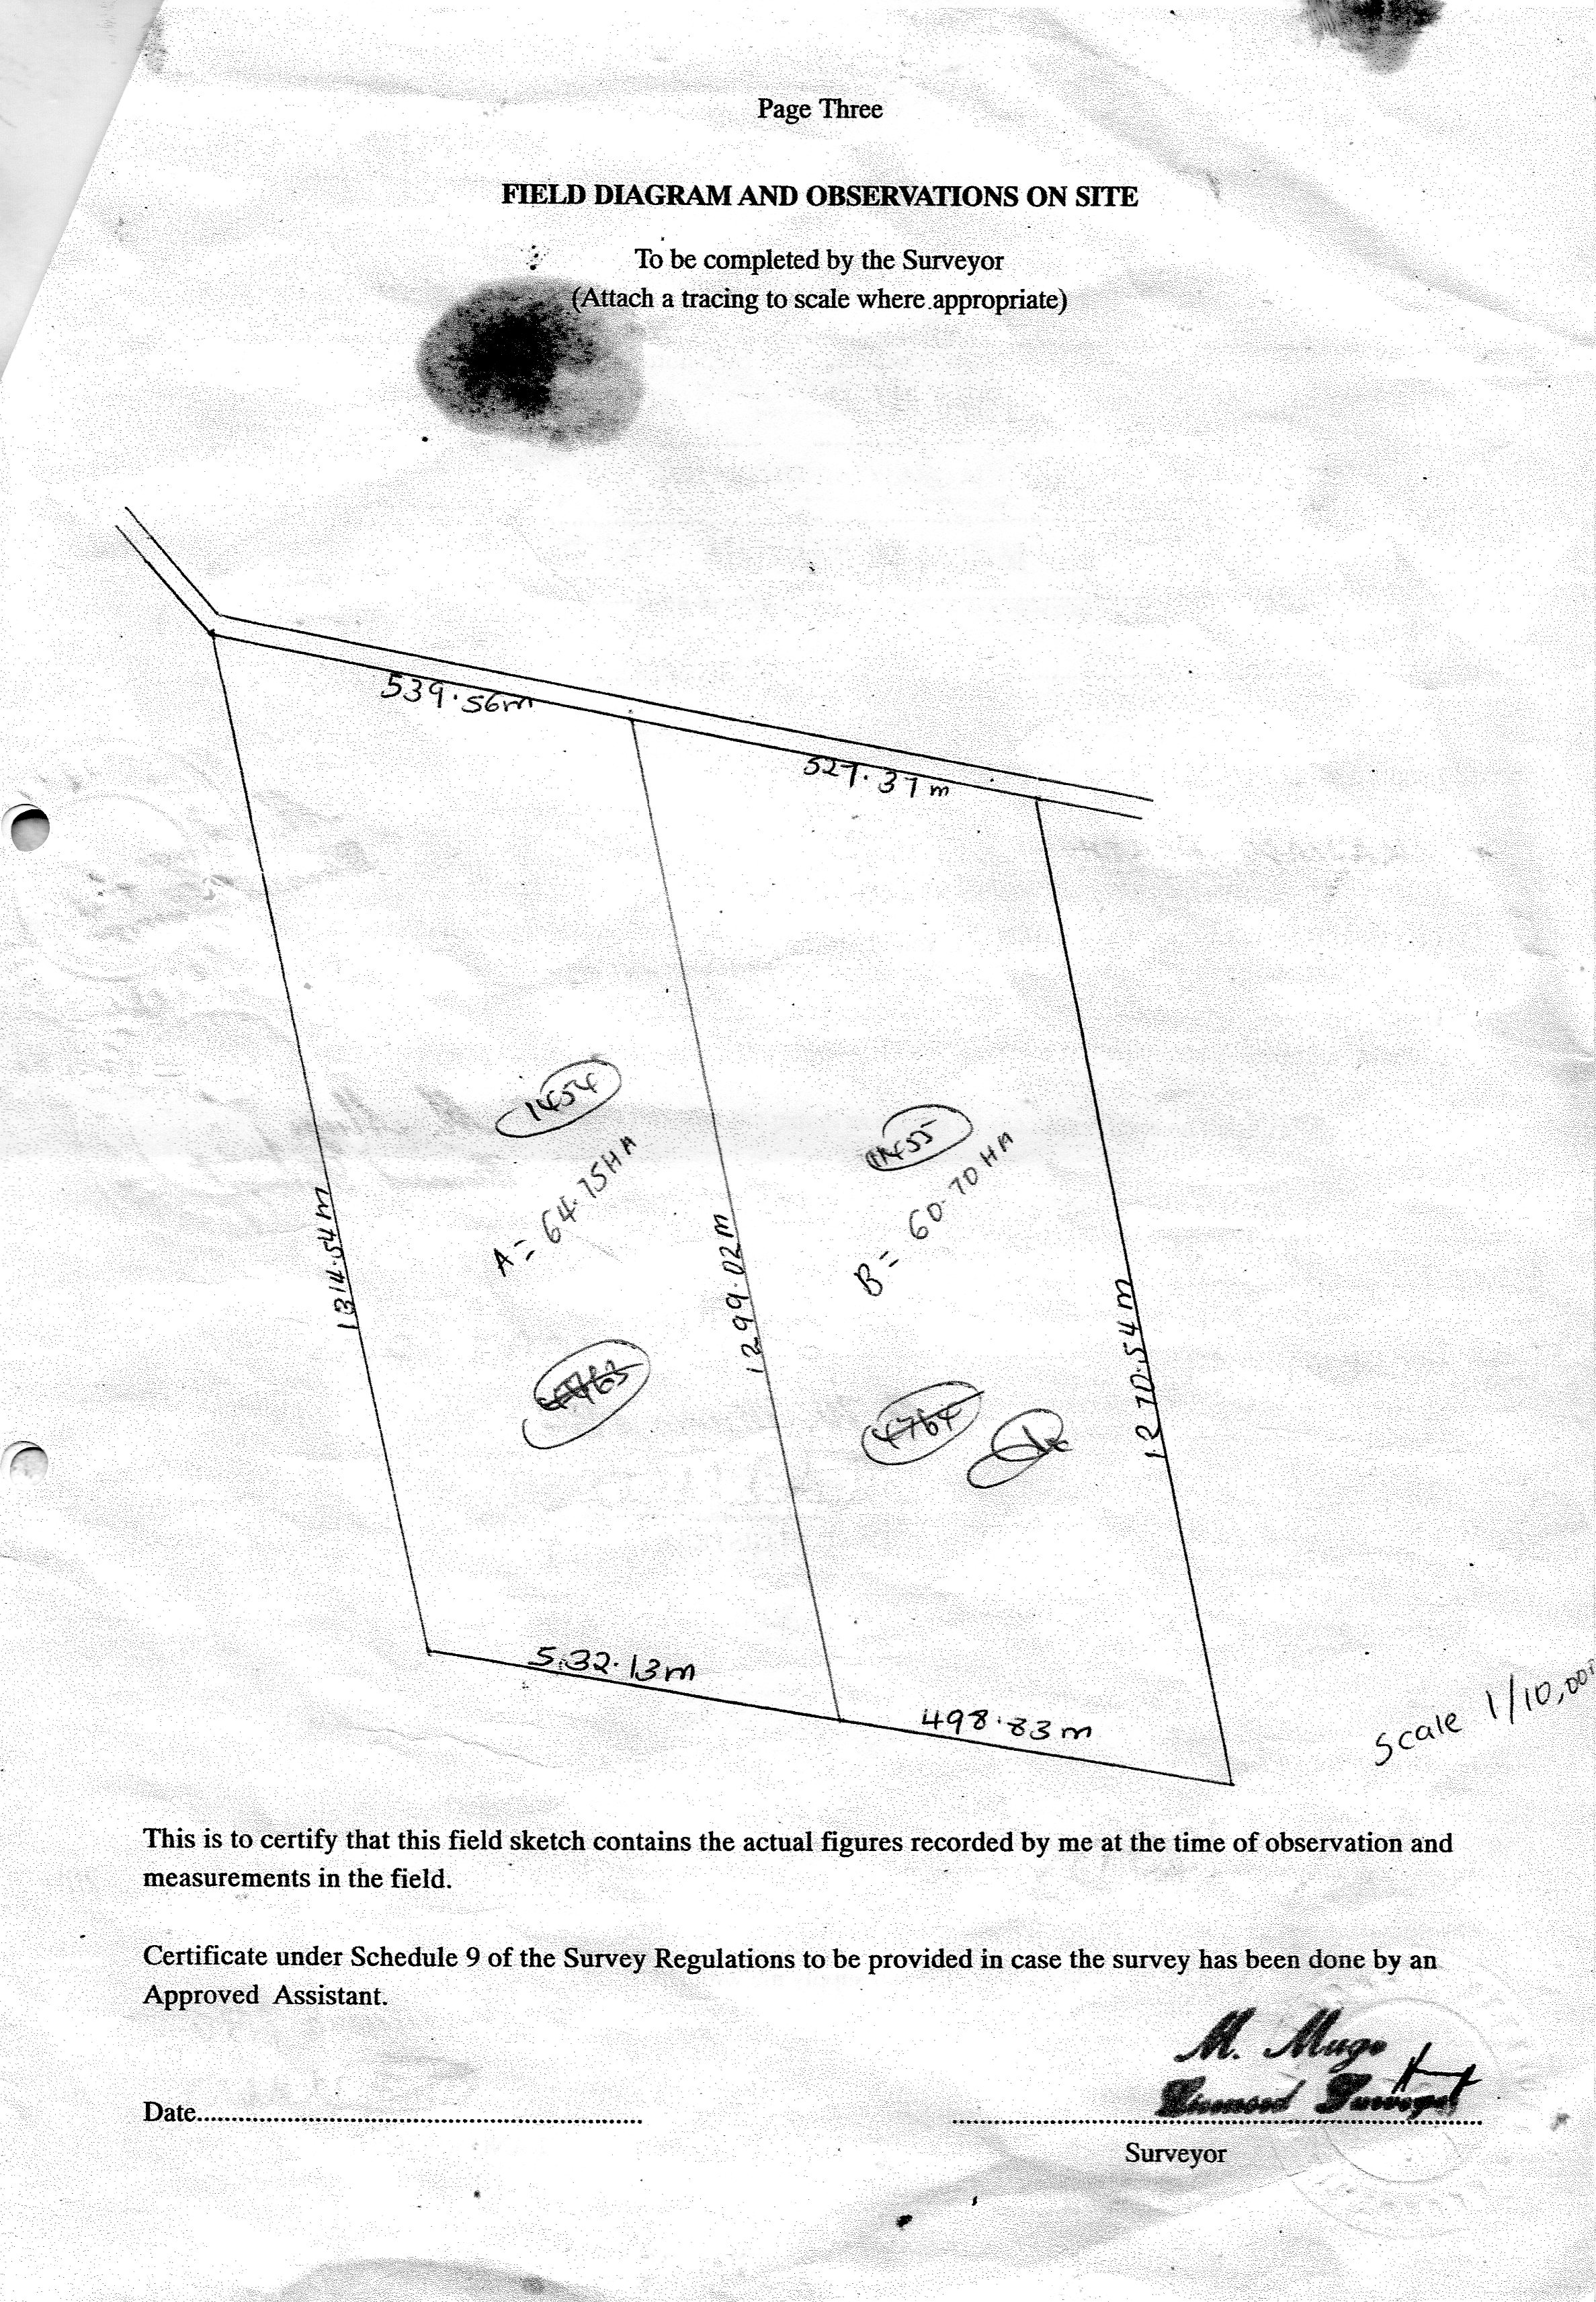 Page Three
FIELD DIAGRAM AND OBSERVATIONS ON SITE
To be completed by the Surveyor
(Attach a tracing to scale where appropriate)
539.56m
527.37m
1454
A = 64.75HA
1455
B = 60.70HA
1314.54m
1299.02m
1270.54m
4763
4764
532.13m
498.83m
Scale 1/10,000
This is to certify that this field sketch contains the actual figures recorded by me at the time of observation and
measurements in the field.
Certificate under Schedule 9 of the Survey Regulations to be provided in case the survey has been done by an
Approved Assistant.
M. Mugo
Licensed Surveyor
Date
Surveyor